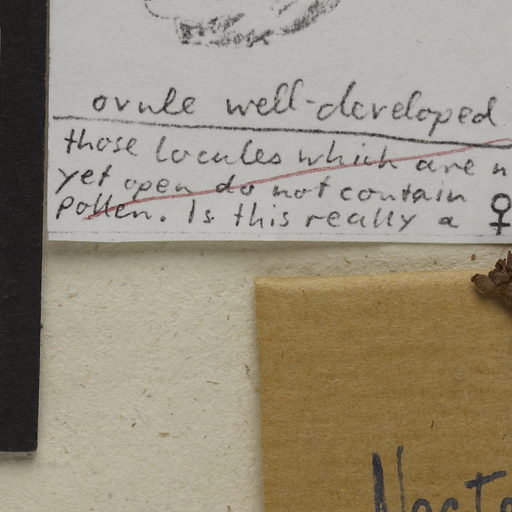 ovule well-developed
those locules which are n
yet open do not contain
pollen. Is this really a ♀
Necto